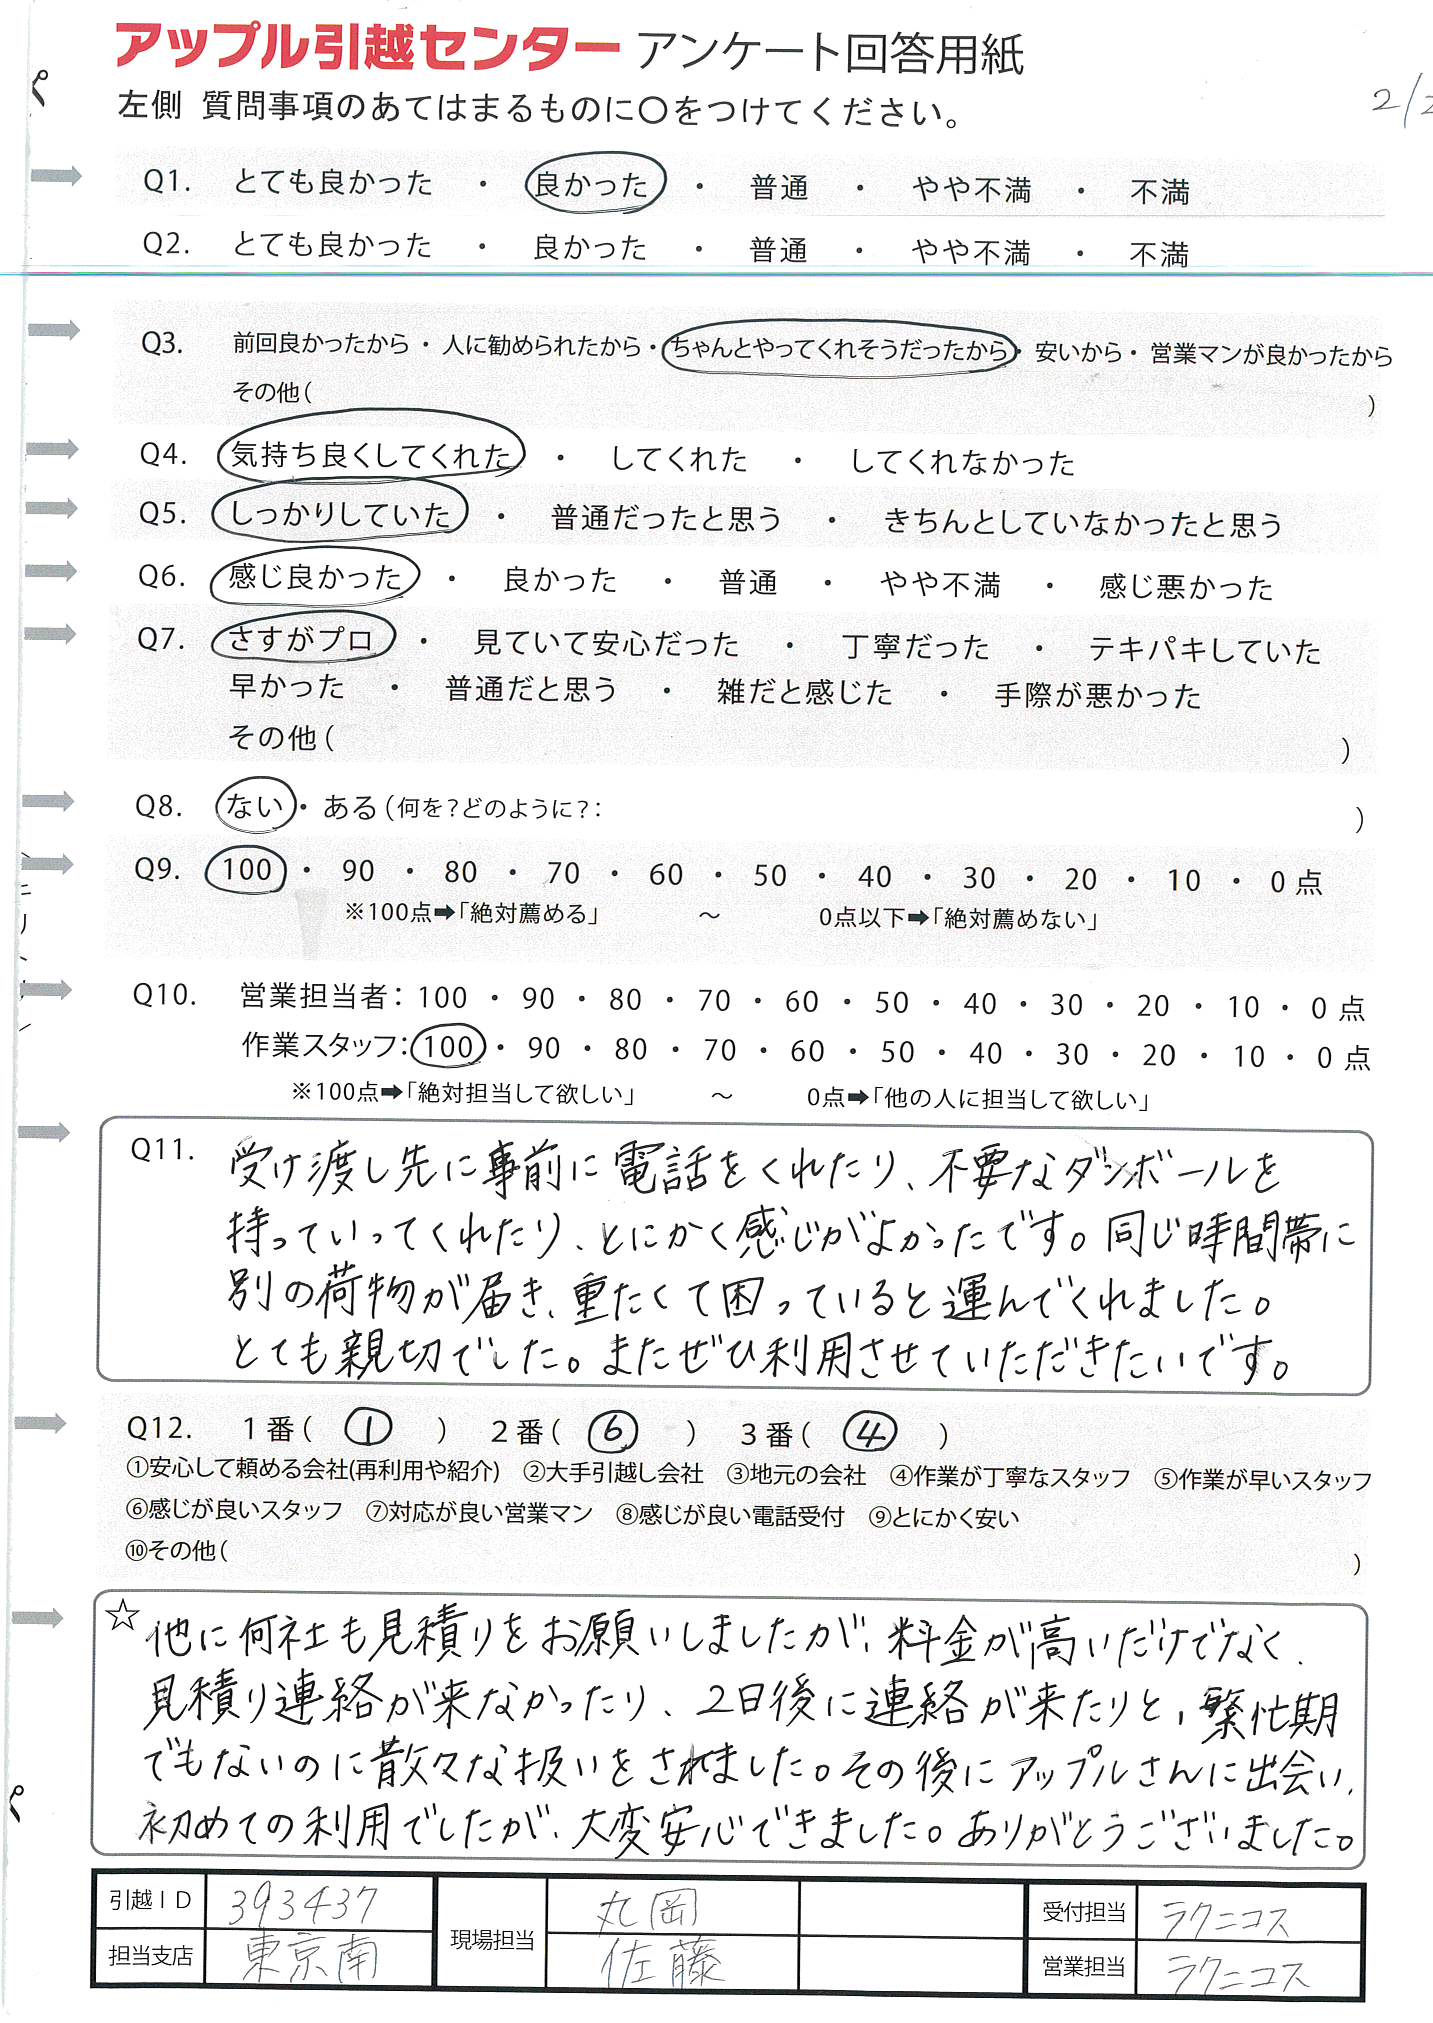 アップル引越センター アンケート回答用紙
左側 質問事項のあてはまるものに○をつけてください。
2/2
Q1. とても良かった ・ 良かった ・ 普通 ・ やや不満 ・ 不満
Q2. とても良かった ・ 良かった ・ 普通 ・ やや不満 ・ 不満
Q3. 前回良かったから・人に勧められたから・ちゃんとやってくれそうだったから・安いから・営業マンが良かったから
その他( )
Q4. 気持ち良くしてくれた ・ してくれた ・ してくれなかった
Q5. しっかりしていた ・ 普通だったと思う ・ きちんとしていなかったと思う
Q6. 感じ良かった ・ 良かった ・ 普通 ・ やや不満 ・ 感じ悪かった
Q7. さすがプロ ・ 見ていて安心だった ・ 丁寧だった ・ テキパキしていた
早かった ・ 普通だと思う ・ 雑だと感じた ・ 手際が悪かった
その他( )
Q8. ない・ある(何を?どのように?: )
Q9. 100 ・ 90 ・ 80 ・ 70 ・ 60 ・ 50 ・ 40 ・ 30 ・ 20 ・ 10 ・ 0点
※100点➡「絶対薦める」 ～ 0点以下➡「絶対薦めない」
Q10. 営業担当者: 100 ・ 90 ・ 80 ・ 70 ・ 60 ・ 50 ・ 40 ・ 30 ・ 20 ・ 10 ・ 0点
作業スタッフ: 100 ・ 90 ・ 80 ・ 70 ・ 60 ・ 50 ・ 40 ・ 30 ・ 20 ・ 10 ・ 0点
※100点➡「絶対担当して欲しい」 ～ 0点➡「他の人に担当して欲しい」
Q11. 受け渡し先に事前に電話をくれたり、不要なダンボールを
持っていってくれたり、とにかく感じがよかったです。同じ時間帯に
別の荷物が届き、重たくて困っていると運んでくれました。
とても親切でした。またぜひ利用させていただきたいです。
Q12. 1番( ① ) 2番( ⑥ ) 3番( ④ )
①安心して頼める会社(再利用や紹介) ②大手引越し会社 ③地元の会社 ④作業が丁寧なスタッフ ⑤作業が早いスタッフ
⑥感じが良いスタッフ ⑦対応が良い営業マン ⑧感じが良い電話受付 ⑨とにかく安い
⑩その他( )
☆他に何社も見積りをお願いしましたが、料金が高いだけでなく、
見積り連絡が来なかったり、2日後に連絡が来たりと、繁忙期
でもないのに散々な扱いをされました。その後にアップルさんに出会い、
初めての利用でしたが、大変安心できました。ありがとうございました。
引越ID 393437 現場担当 丸岡 受付担当 ラクニコス
担当支店 東京南 佐藤 営業担当 ラクニコス